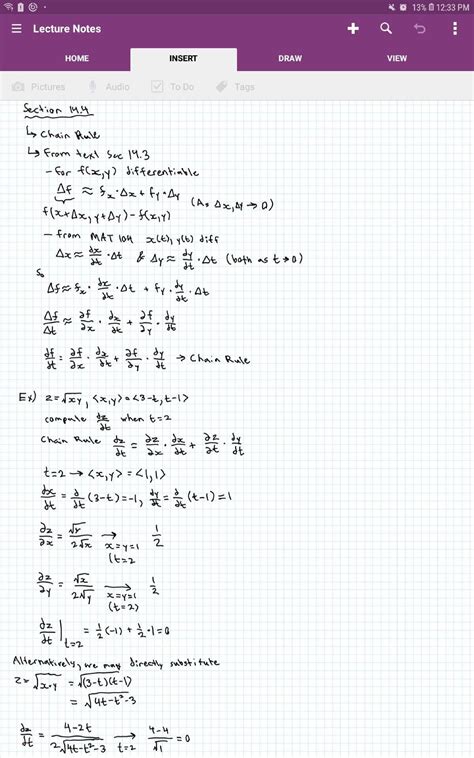 13% 12:33 PM
Lecture Notes
HOME INSERT DRAW VIEW
Pictures Audio To Do Tags
Section 14.4
↳ Chain Rule
↳ From text Sec 14.3
- For f(x,y) differentiable
Δf ≈ fx·Δx + fy·Δy (As Δx,Δy → 0)
f(x+Δx, y+Δy) - f(x,y)
- from MAT 104 x(t), y(t) diff
Δx ≈ dx/dt · Δt & Δy ≈ dy/dt · Δt (both as t→0)
So
Δf ≈ fx · dx/dt · Δt + fy · dy/dt · Δt
Δf/Δt ≈ ∂f/∂x · dx/dt + ∂f/∂y · dy/dt
df/dt = ∂f/∂x · dx/dt + ∂f/∂y · dy/dt → Chain Rule
Ex) z=√xy, <x,y> = <3-t, t-1>
compute dz/dt when t=2
Chain Rule dz/dt = ∂z/∂x · dx/dt + ∂z/∂t · dy/dt
t=2 → <x,y> = <1,1>
dx/dt = d/dt (3-t) = -1, dy/dt = d/dt (t-1) = 1
∂z/∂x = √y/2√x → x=y=1 (t=2 1/2
∂z/∂y = √x/2√y → x=y=1 (t=2) 1/2
dz/dt | t=2 = 1/2(-1) + 1/2·1 = 0
Alternatively, we may directly substitute
z = √x·y = √(3-t)(t-1)
= √4t-t²-3
dz/dt = 4-2t/2√4t-t²-3 → t=2 4-4/√1 = 0